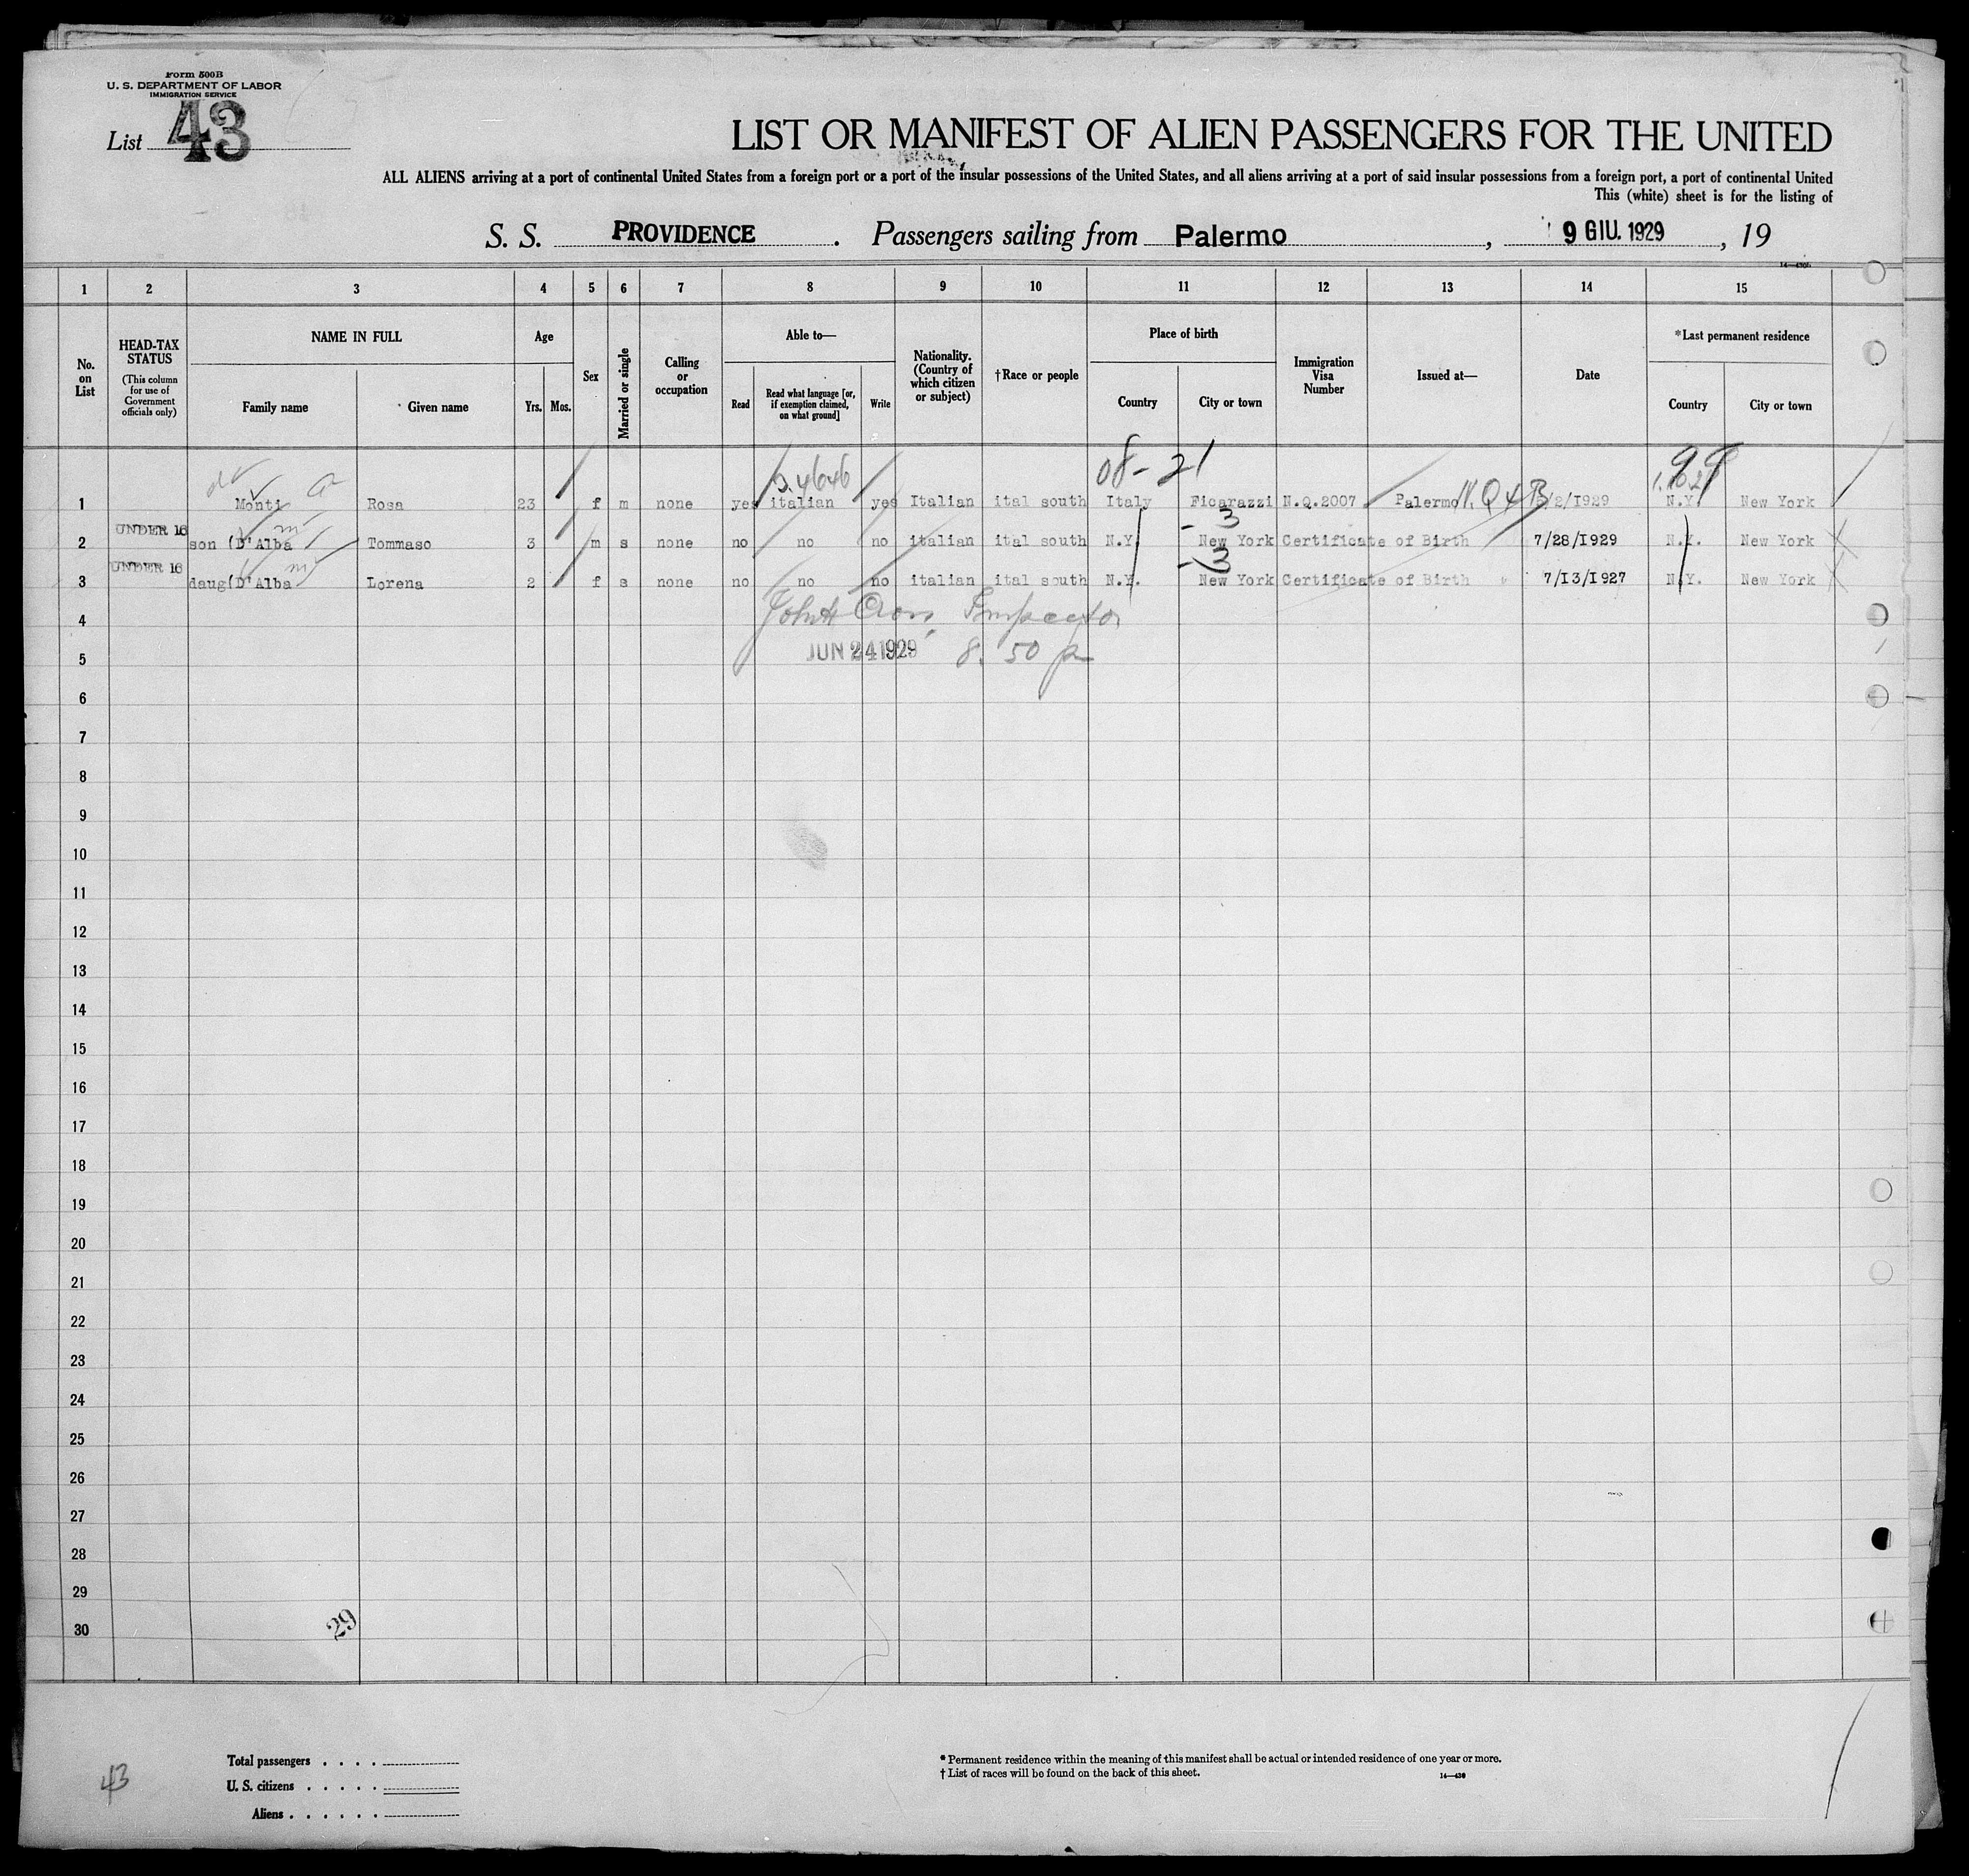 Form 500B
U. S. DEPARTMENT OF LABOR
IMMIGRATION SERVICE
List 43
LIST OR MANIFEST OF ALIEN PASSENGERS FOR THE UNITED
ALL ALIENS arriving at a port of continental United States from a foreign port or a port of the insular possessions of the United States, and all aliens arriving at a port of said insular possessions from a foreign port, a port of continental United
This (white) sheet is for the listing of
S. S. PROVIDENCE . Passengers sailing from Palermo , 9 GIU. 1929 , 19
1 2 3 4 5 6 7 8 9 10 11 12 13 14 15
No. on List
HEAD-TAX STATUS (This column for use of Government officials only)
NAME IN FULL
Family name Given name
Age
Yrs. Mos.
Sex
Married or single
Calling or occupation
Able to—
Read Read what language [or, if exemption claimed, on what ground] Write
Nationality. (Country of which citizen or subject)
†Race or people
Place of birth
Country City or town
Immigration Visa Number
Issued at—
Date
*Last permanent residence
Country City or town
08-21 99
1 Monti Rosa 23 f m none yes italian yes Italian ital south Italy Ficarazzi N.Q.2007 Palermo /2/1929 N.Y. New York
UNDER 16
3
2 son (D'Alba Tommaso 3 m s none no no no italian ital south N.Y. New York Certificate of Birth 7/28/1929 N.Y. New York
UNDER 16
3
3 daug(D'Alba Lorena 2 f s none no no no italian ital south N.Y. New York Certificate of Birth 7/13/1927 N.Y. New York
4 John H Cross, Inspector
5 JUN 24 1929 8. 50 p
6
7
8
9
10
11
12
13
14
15
16
17
18
19
20
21
22
23
24
25
26
27
28
29
30
29
Total passengers . . . .
U. S. citizens . . . . .
Aliens . . . . . .
43
* Permanent residence within the meaning of this manifest shall be actual or intended residence of one year or more.
† List of races will be found on the back of this sheet.
14—430